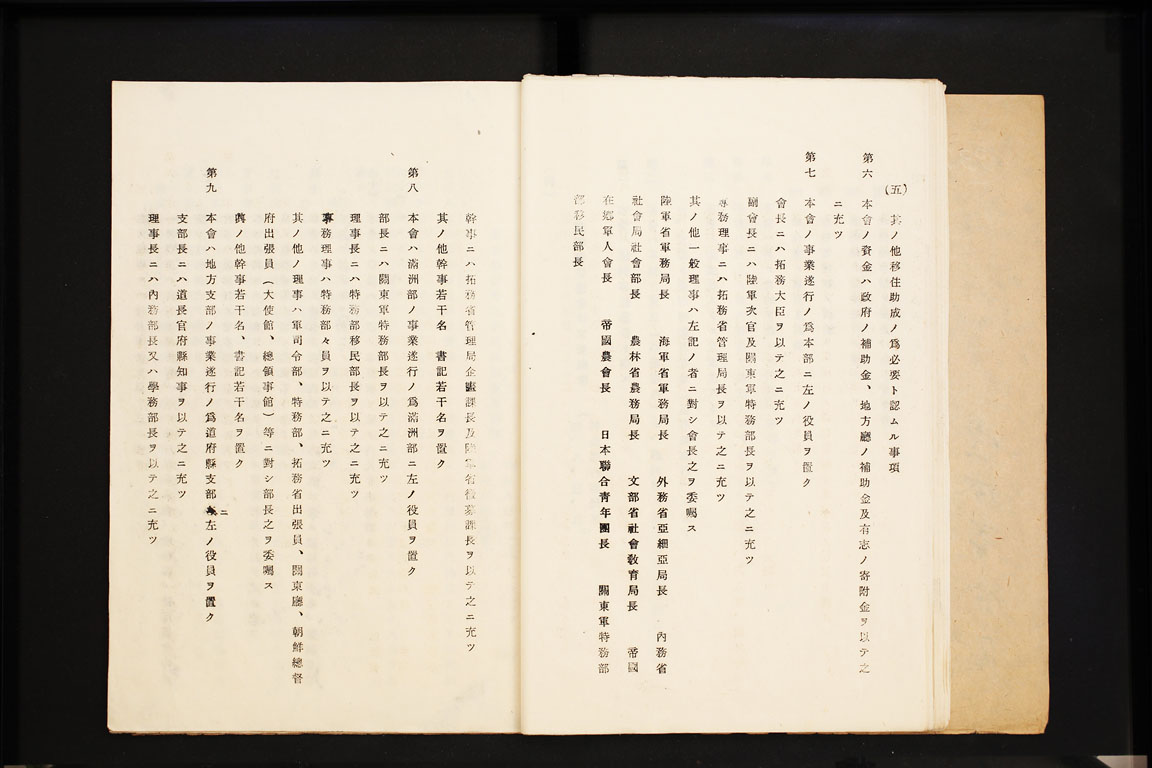 (五) 其ノ他移住助成ノ爲必要ト認ムル事項
第六 本會ノ資金ハ政府ノ補助金、地方廳ノ補助金及有志ノ寄附金ヲ以テ之
ニ充ツ
第七 本會ノ事業遂行ノ爲本部ニ左ノ役員ヲ置ク
會長ニハ拓務大臣ヲ以テ之ニ充ツ
副會長ニハ陸軍次官及關東軍特務部長ヲ以テ之ニ充ツ
專務理事ニハ拓務省管理局長ヲ以テ之ニ充ツ
其ノ他一般理事ハ左記ノ者ニ對シ會長之ヲ委囑ス
陸軍省軍務局長 海軍省軍務局長 外務省亞細亞局長 內務省
社會局社會部長 農林省農務局長 文部省社會敎育局長 帝國
在鄉軍人會長 帝國農會長 日本聯合青年團長 關東軍特務部
部移民部長
幹事ニハ拓務省管理局企畫課長及陸軍省徵募課長ヲ以テ之ニ充ツ
其ノ他幹事若干名 書記若干名ヲ置ク
第八 本會ハ滿洲部ノ事業遂行ノ爲滿洲部ニ左ノ役員ヲ置ク
部長ニハ關東軍特務部長ヲ以テ之ニ充ツ
理事長ニハ特務部移民部長ヲ以テ之ニ充ツ
專務理事ハ特務部々員ヲ以テ之ニ充ツ
其ノ他ノ理事ハ軍司令部、特務部、拓務省出張員、關東廳、朝鮮總督
府出張員(大使館、總領事館)等ニ對シ部長之ヲ委囑ス
其ノ他幹事若干名、書記若干名ヲ置ク
第九 本會ハ地方支部ノ事業遂行ノ爲道府縣支部ニ左ノ役員ヲ置ク
支部長ニハ道長官府縣知事ヲ以テ之ニ充ツ
理事長ニハ內務部長又ハ學務部長ヲ以テ之ニ充ツ